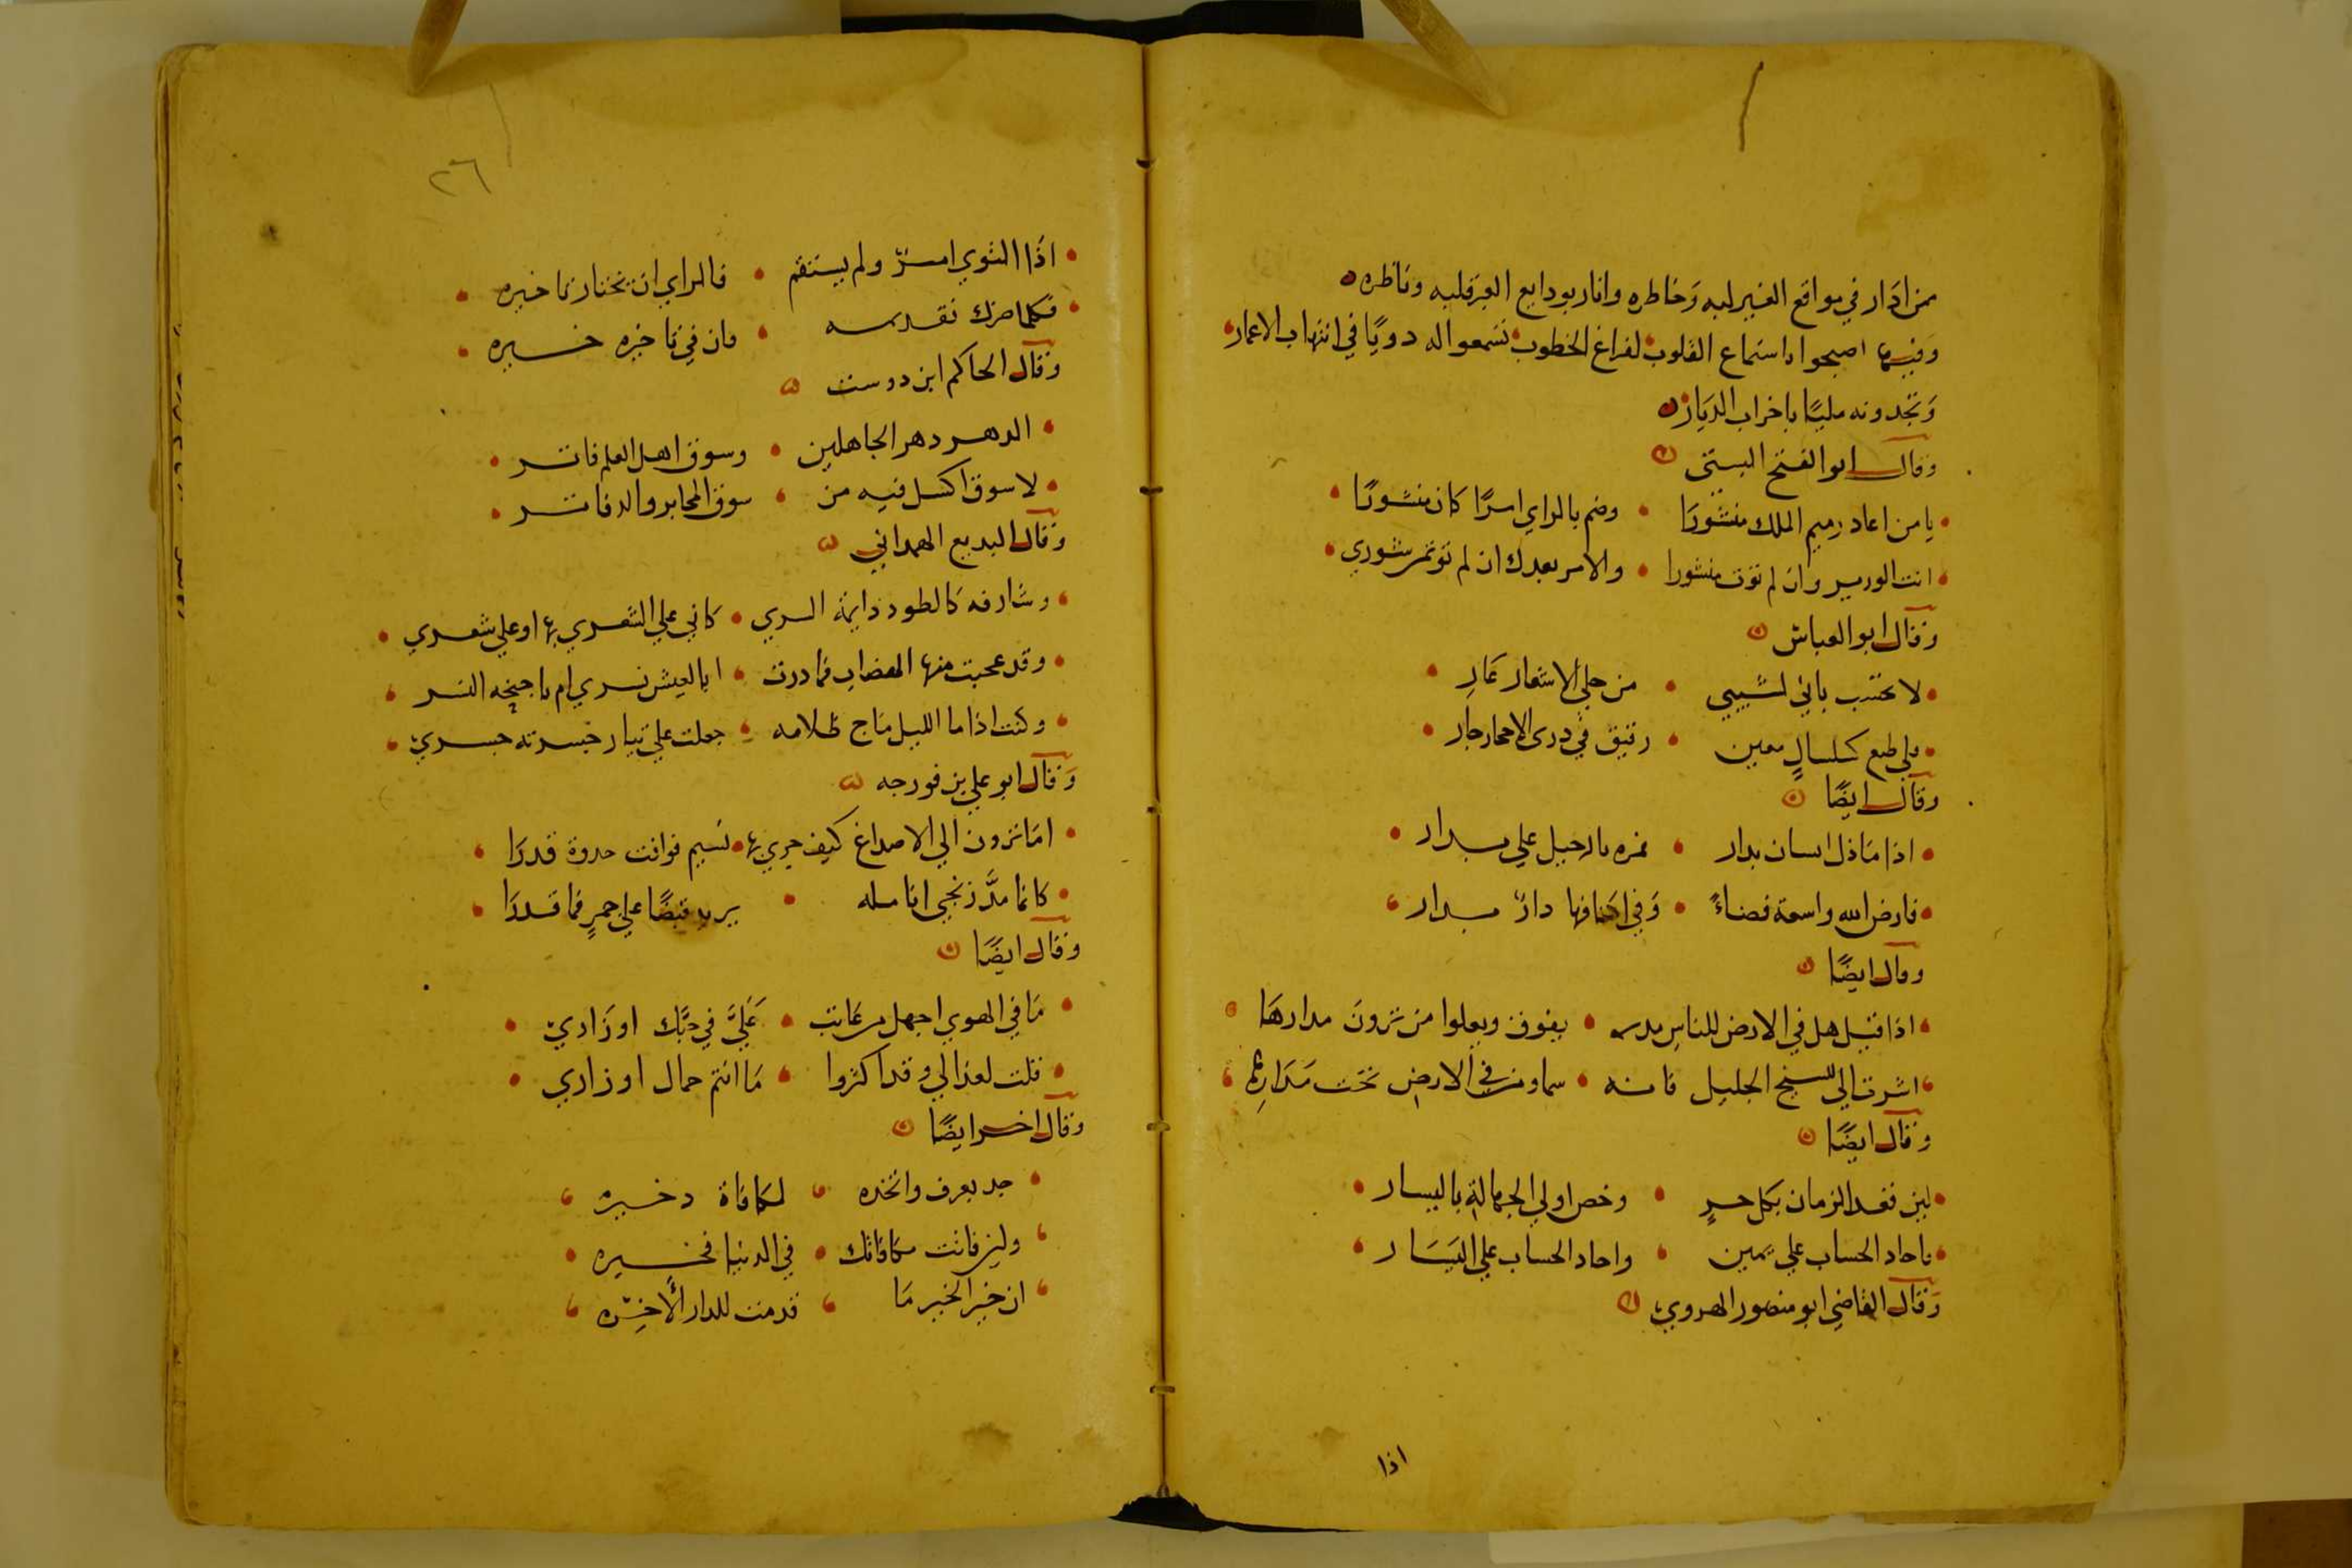 من ادار في مواقع الغير لبه وخاطره وانار بودايع العز قلبه وناظره
وفيها اصبحوا باستماع القلوب لفراغ الخطوب تسمعوا له دويًا في انتهاب الاعمار
وتجدونه مليًا باخراب الديار
وقال ابو الفتح البستي
يا من اعاد رميم الملك منشورا وضم بالراي امرًا كان منشورًا
انت الوزير وان لم توت منشورا والامر بعدك ان لم توتمر شوري
وقال ابو العباش
لا تحتسب باني لشيبي من حلي الاشعار عار
فلي طبع كسلسالٍ معين رقيق في ذرى الاحجار جار
وقال ايضًا
اذا ما ذل انسان بدار فمره بالرحيل علي بدار
فارض الله واسعة فضاءً وفي اكنافها دارٌ بدار
وقال ايضًا
اذا قيل هل في الارض للناس مدره يفوق ويعلوا من ترون مدارها
اشرت الي الشيخ الجليل فانه سما ومن في الارض تحت مدارها
وقال ايضًا
لين فقد الزمان بكل حرٍ وخص اولي الجهالة باليسار
فاحاد الحساب علي يمين واحاد الحساب علي اليسار
وقال القاضي ابو منصور الهروي
اذا
٢٦
اذا التوي امرٌ ولم يستقم فالراي ان تختار تاخيره
فكلما ضرك تقديمه فان في تاخيره خيره
وقال الحاكم ابن دوست
الدهر دهر الجاهلين وسوق اهل العلم فاتر
لا سوق اكسل فيه من سوق المحابر والدفاتر
وقال البديع الهمداني
وشارفه كالطود دايمة السري كاني علي الشعري بها او علي شعري
وقد عجبت منها الهضاب فما درت ابالعيش نسري ام باجنحه النسر
وكنت اذا ما الليل ماج ظلامه جعلت علي تيار خسرته جسري
وقال ابو علي بن فورجه
اما ترون الي الاصداغ كيف جري بها نسيم فوافت حدوة قدرا
كانما مدَّ زنجي انامله يريد قبضًا علي جمرٍ فما قدرا
وقال ايضًا
ما في الهوي اجهل من عاتب عَلَيَّ في حبَّك او زاري
فقلت لعذالي وقد اكثروا ما انتم حمال اوزاري
وقال اخر ايضًا
جد بعرف واتخذه لمكافاة دخيره
ولين فاتت مكافاتك في الدنيا فخيره
ان خير الخير ما قدمت للدار الأخره